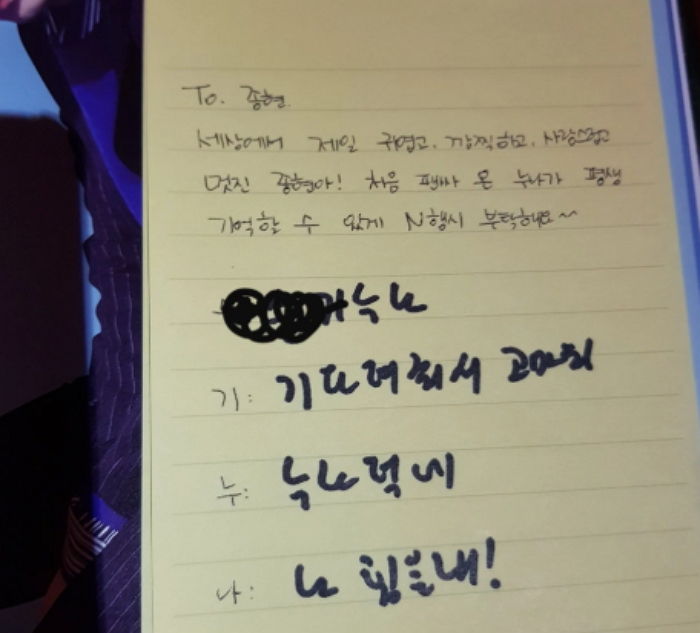 To. 종현
세상에서 제일 귀엽고, 깜찍하고, 사랑스럽고
멋진 종현아! 처음 팬싸 온 누나가 평생
기억할 수 있게 N행시 부탁해요~
누나
기: 기다려줘서 고마워
누: 누나 덕에
나: 나 힘을 내!